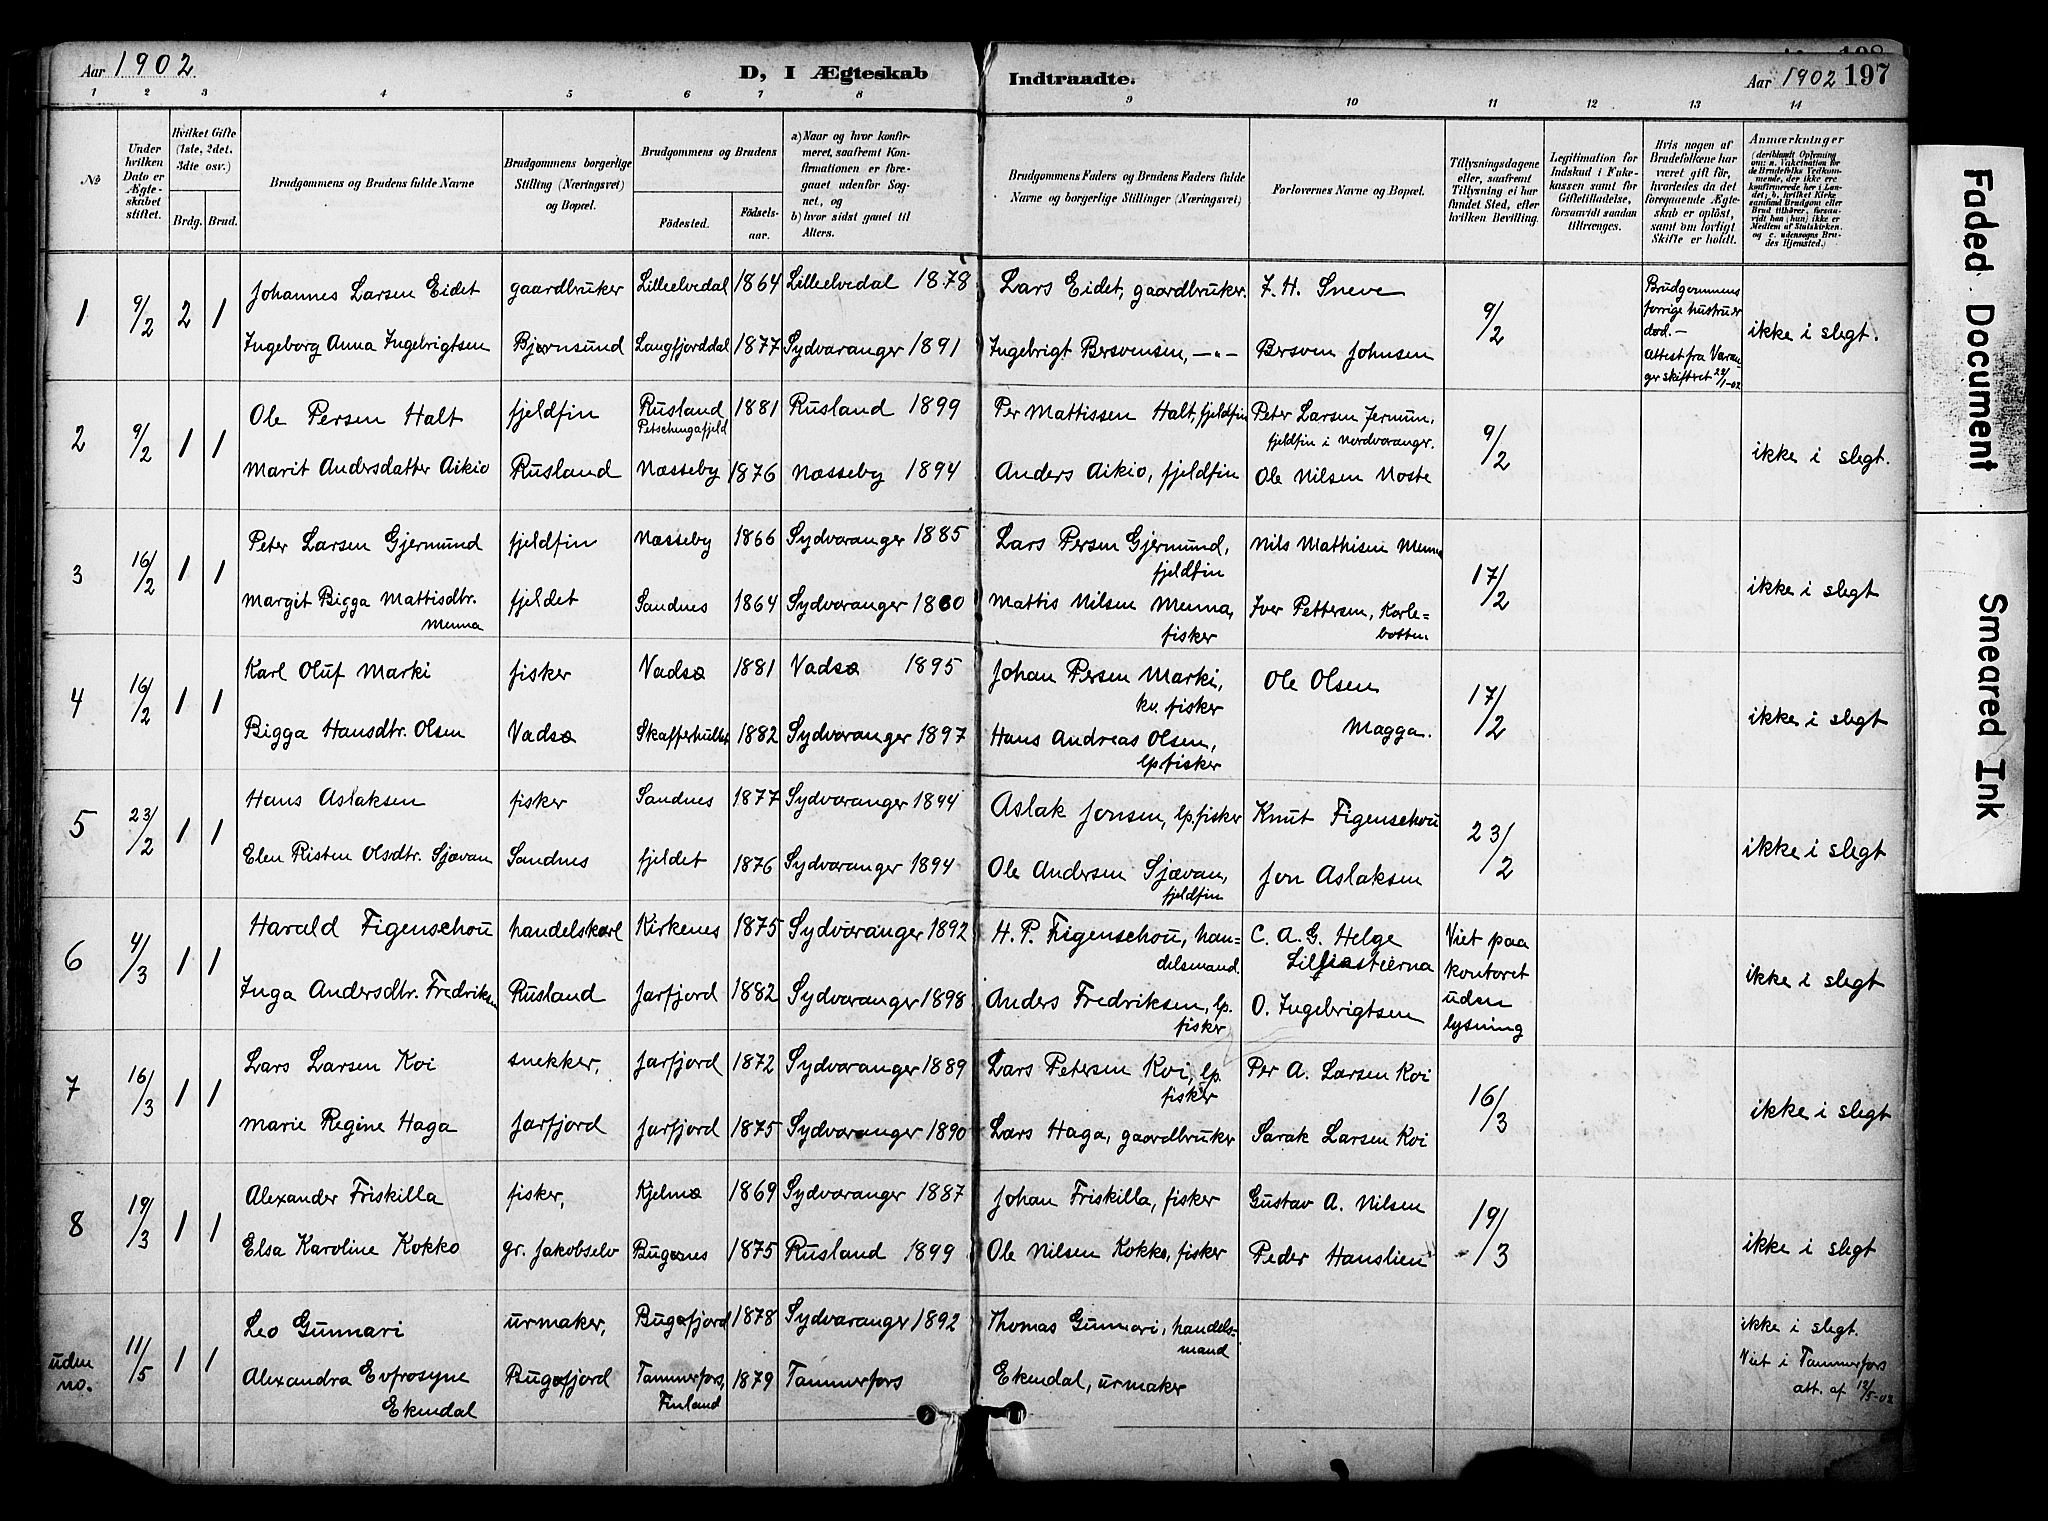 Aar 1902
D, I Ægteskab Indtraadte.
Aar 1902 197
1 2 3 4 5 6 7 8 9 10 11 12 13 14
No
Under hvilken Dato er Ægteskabet stiftet.
Hvilket Gifte (1ste, 2det, 3die osv.)
Brdg. Brud.
Brudgommens og Brudens fulde Navne
Brudgommens borgerlige Stilling (Næringsvei) og Bopæl.
Brudgommens og Brudens
Födested. Födsels-aar.
a) Naar og hvor konfirmeret, saafremt Konfirmationen er foregaaet udenför Sognet, og
b) hvor sidst gaaet til Alters.
Brudgommens Faders og Brudens Faders fulde Navne og borgerlige Stillinger (Næringsvei)
Forlovernes Navne og Bopæl.
Tillysningsdagene eller, saafremt Tillysning ei har fundet Sted, efter hvilken Bevilling.
Legitimation for Indskud i Enkekassen samt for Giftetilladelse, forsaavidt saadan tiltrænges.
Hvis nogen af Brudefolkene har været gift før, hvorledes da det foregaaende Ægteskab er oplöst, samt om lovligt Skifte er holdt.
Anmærkninger
(deriblandt Oplysning om: a. Vakcination for de Brudefolks Vedkommende, der ikke ere konfirmerede her i Landet; b. hvilket Kirkesamfund Brudgom eller Brud tilhører, forsaavidt han (hun) ikke er Medlem af Statskirken, og c. udensogns Brudes Hjemsted.)
1 9/2 2 1 Johannes Larsen Eidet gaardbruker Lilleelvedal 1864 Lilleelvedal 1878 Lars Eidet, gaardbruker. J. H. Sneve 9/2 Brudgommens forrige hustru er død. — Attest fra Varanger skifteret 22/1-02 ikke i slegt.
Ingeborg Anna Ingebrigtsen Bjørnsund Langfjorddal 1877 Sydvaranger 1891 Ingebrigt Bersvensen, —"— Bersven Johnsen
2 9/2 1 1 Ole Persen Halt fjeldfin Rusland Petschengafjeld 1881 Rusland 1899 Per Mattissen Halt, fjeldfin Peter Larsen Jermun, fjeldfin i Nordvarangr. 9/2 ikke i slegt.
Marit Andersdatter Aikio Rusland Næsseby 1876 Næsseby 1894 Anders Aikio, fjeldfin Ole Nilsen Noste
3 16/2 1 1 Peter Larsen Gjermund fjeldfin Næsseby 1866 Sydvaranger 1885 Lars Persen Gjermund, fjeldfin Nils Mathisen Menna 17/2 ikke i slegt
Margit Bigga Mattisdtr. Menna fjeldet Sandnes 1864 Sydvaranger 1880 Mattis Nilsen Menna, fisker Iver Pettersen, Karlebotten
4 16/2 1 1 Karl Oluf Marki fisker Vadsø 1881 Vadsø 1895 Johan Persen Marki, kv. fisker Ole Olsen 17/2 ikke i slegt
Bigga Hansdtr. Olsen Vadsø Skafferhullet 1882 Sydvaranger 1897 Hans Andreas Olsen, lp fisker Magga.
5 23/2 1 1 Hans Aslaksen fisker Sandnes 1877 Sydvaranger 1894 Aslak Jonsen, lp. fisker Knut Figenschou 23/2 ikke i slegt
Elen Risten Olsdtr. Sjævan Sandnes fjeldet 1876 Sydvaranger 1894 Ole Andersen Sjævan, fjeldfin Jon Aslaksen
6 4/3 1 1 Harald Figenschou handelskarl Kirkenes 1875 Sydvaranger 1892 H. P. Figenschou, handelsmand. C. A. G. Helge Lilliestierna Viet paa kontoret uden lysning ikke i slegt
Inga Andersdtr. Fredriksen Rusland Jarfjord 1882 Sydvaranger 1898 Anders Fredriksen, lp. fisker O. Ingebrigtsen
7 16/3 1 1 Lars Larsen Koi snekker, Jarfjord 1872 Sydvaranger 1889 Lars Petersen Koi, lp. fisker Per A. Larsen Koi 16/3 ikke i slegt
Marie Regine Haga Jarfjord Jarfjord 1875 Sydvaranger 1890 Lars Haga, gaardbruker Sarak Larsen Koi
8 19/3 1 1 Alexander Friskilla fisker, Kjelmø 1869 Sydvaranger 1887 Johan Friskilla, fisker Gustav A. Nilsen 19/3 ikke i slegt
Elsa Karoline Kokko gr. Jakobselv Bugønes 1875 Rusland 1899 Ole Nilsen Kokko, fisker Peder Hanslien
uden no. 11/5 1 1 Leo Gunnari urmaker, Bugøfjord 1878 Sydvaranger 1892 Thomas Gunnari, handelsmand ikke i slegt. Viet i Tammerfors att. af 12/5-02
Alexandra Evfrosyne Ekendal Bugøfjord Tammerfors, Finland 1879 Tammerfors Ekendal, urmaker
Faded Document
Smeared Ink